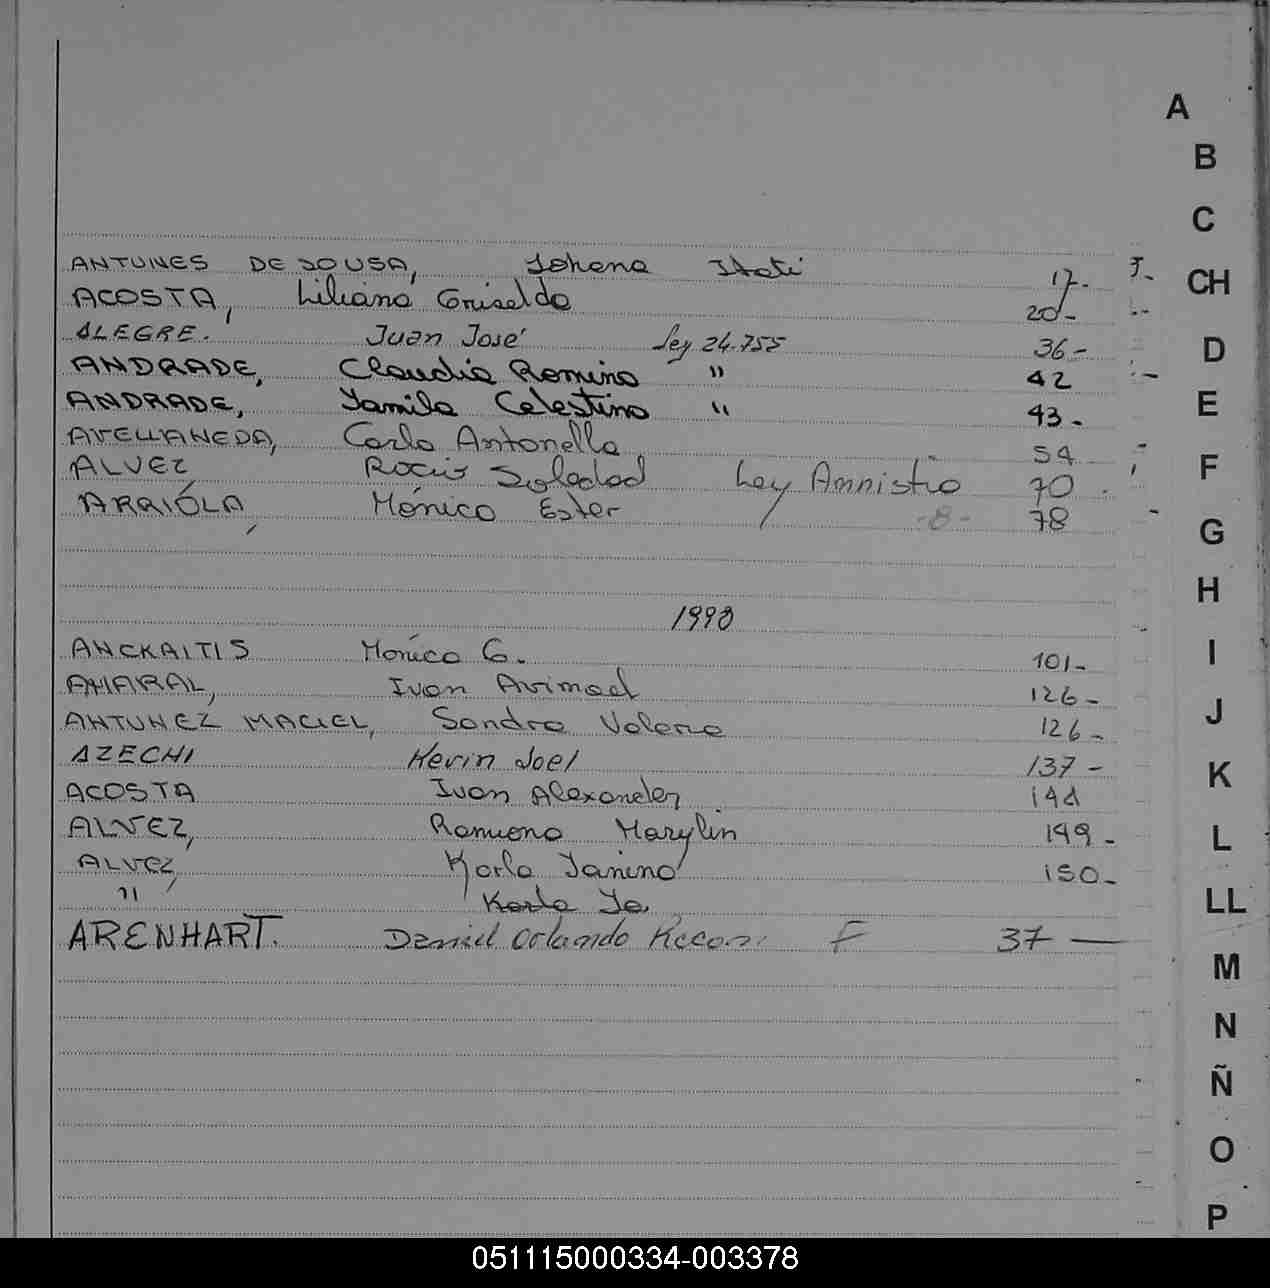 A
B
C
ANTUNES DE SOUSA, Johana Itati 17-
CH
ACOSTA, Liliana Griselda 20-
ALEGRE. Juan José Ley 24.755 36-
D
ANDRADE, Claudia Romina " 42
E
ANDRADE, Yamila Celestina " 43-
AVELLANEDA, Carla Antonella 54
F
ALVEZ Rocio Soledad Ley Amnistia 70
ARRIOLA, Mónica Ester -8- 78
G
H
1998
ANCKAITIS Mónica G. 101-
I
AMARAL, Ivan Avimael 126-
J
ANTUNEZ MACIEL, Sandra Valeria 126-
AZECHI Kevin Joel 137-
K
ACOSTA Ivan Alexander 144
ALVEZ, Ramona Marylin 149-
L
ALVEZ, Karla Janina 150-
" Karla Ja
LL
ARENHART. Daniel Orlando F 37 —
M
N
Ñ
O
P
051115000334-003378